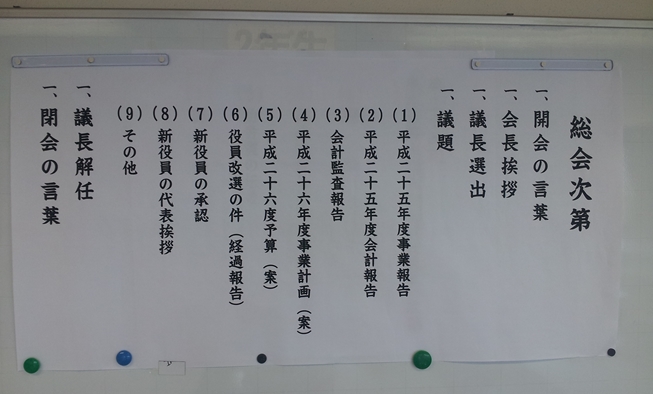 総会次第
一、開会の言葉
一、会長挨拶
一、議長選出
一、議題
(1)平成二十五年度事業報告
(2)平成二十五年度会計報告
(3)会計監査報告
(4)平成二十六年度事業計画(案)
(5)平成二十六度予算(案)
(6)役員改選の件(経過報告)
(7)新役員の承認
(8)新役員の代表挨拶
(9)その他
一、議長解任
一、閉会の言葉